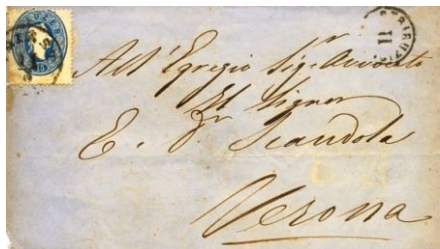 All' Egregio Sig.r Avvocato
Il Signor
E. Dr Scandola
Verona